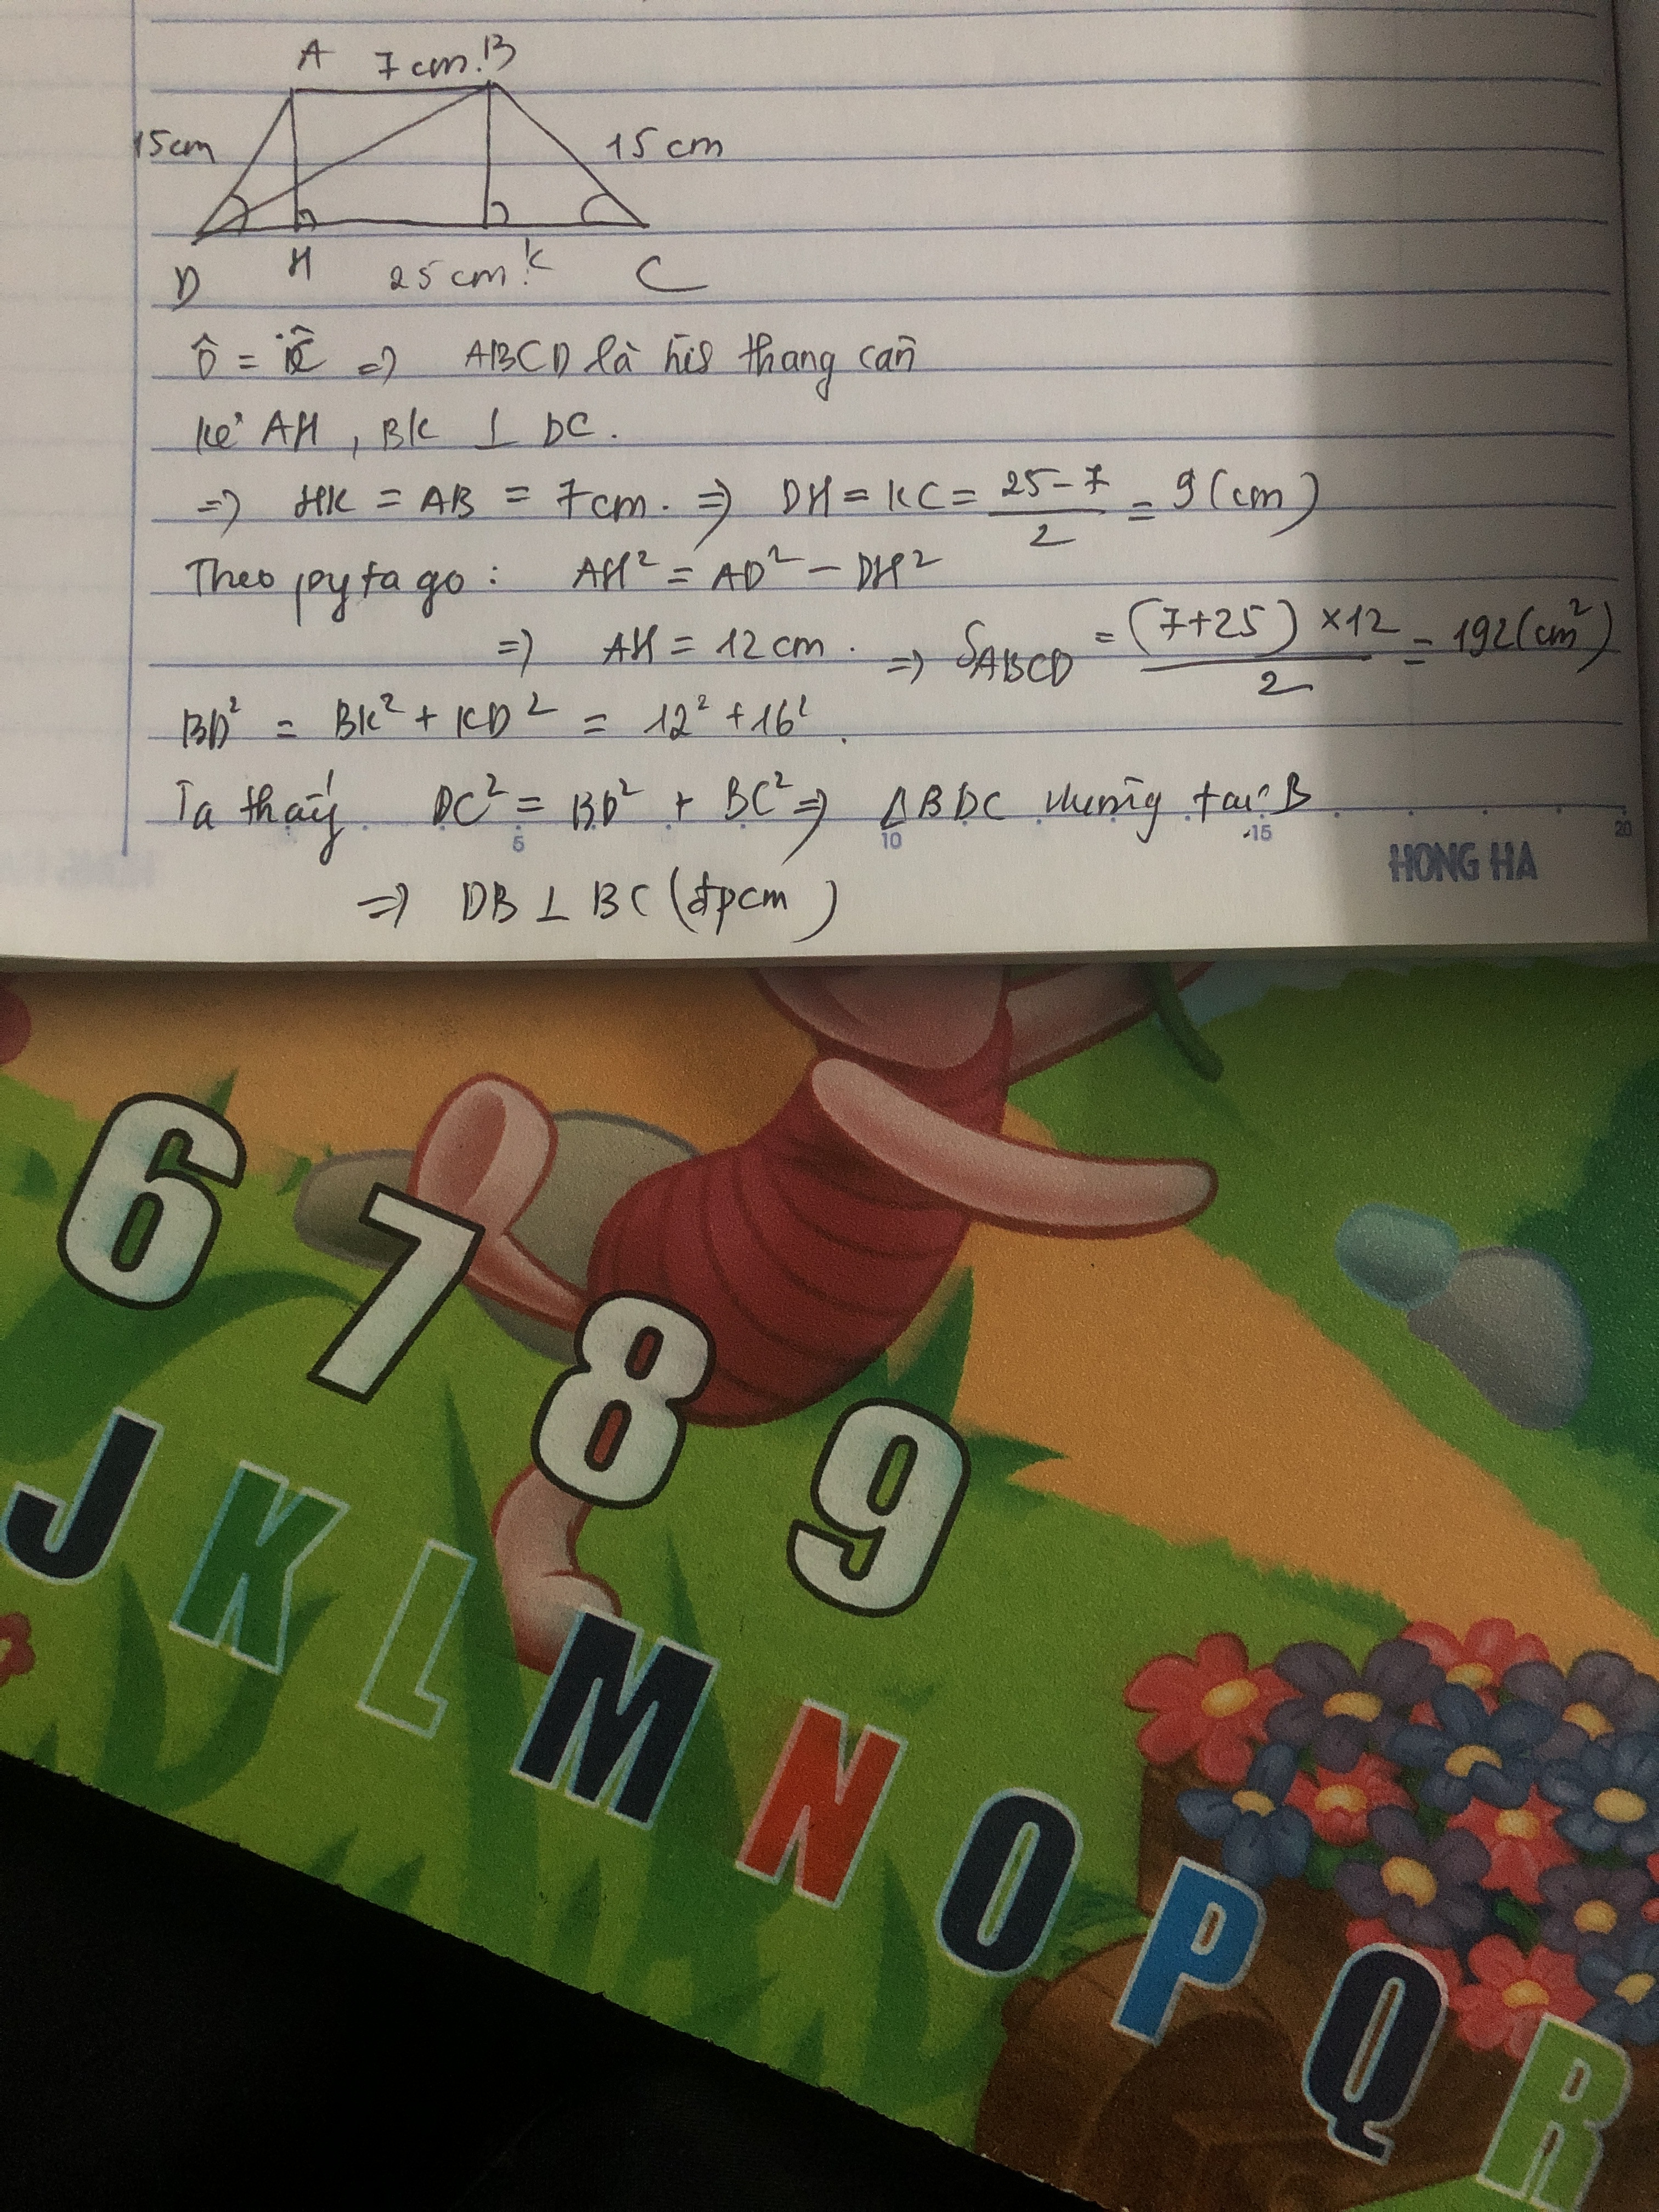 A 7cm B
15cm
15 cm
D H 25 cm K C
D̂ = Ĉ => ABCD là his thang cân
Kẻ AH, BK ⊥ DC.
=> HK = AB = 7cm. => DH = KC = (25-7)/2 = 9(cm)
Theo pytago: AH² = AD² - DH²
=> AH = 12 cm. => S_ABCD = (7+25)×12/2 = 192(cm²)
BD² = BK² + KD² = 12² + 16².
Ta thấy DC² = BD² + BC² => ΔBDC vuông tại B
5 10 15 20
HONG HA
=> DB ⊥ BC (đpcm)
6 7 8 9
J K L M N O P Q R